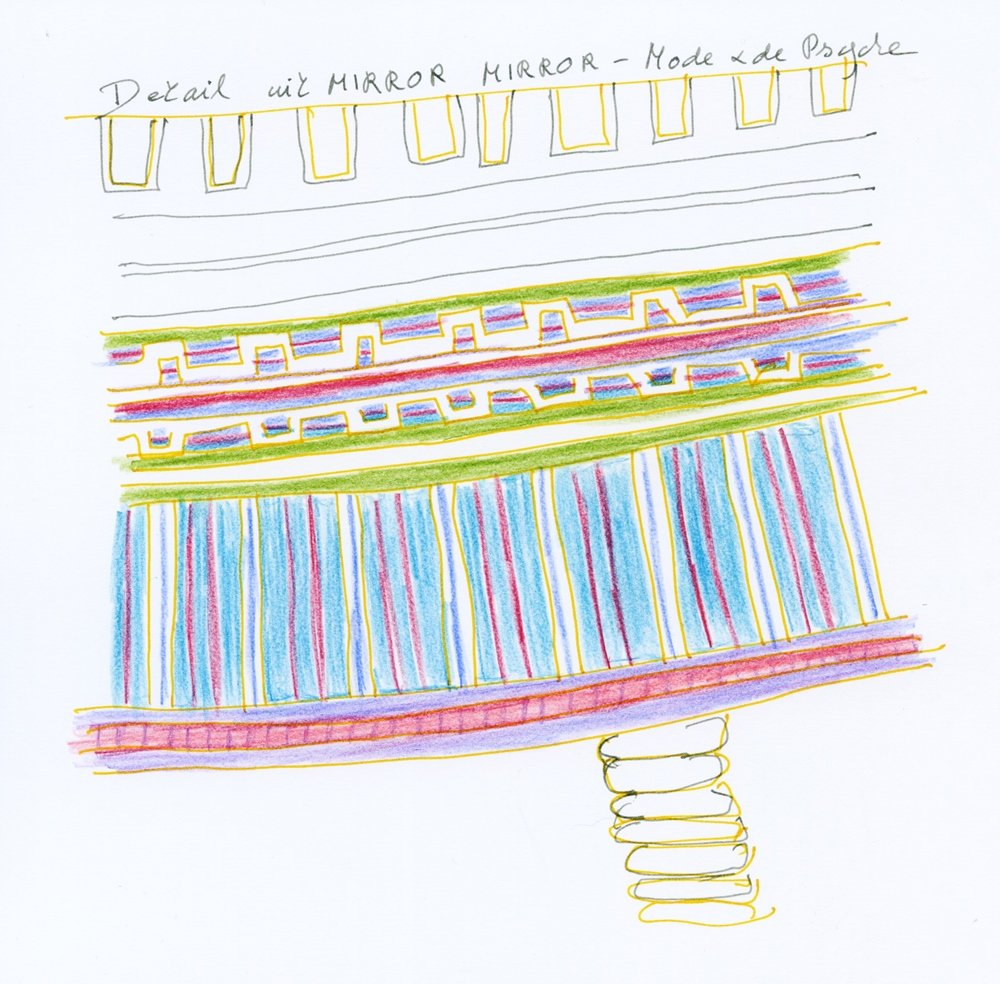 Detail uit MIRROR MIRROR - Mode & de Psyche